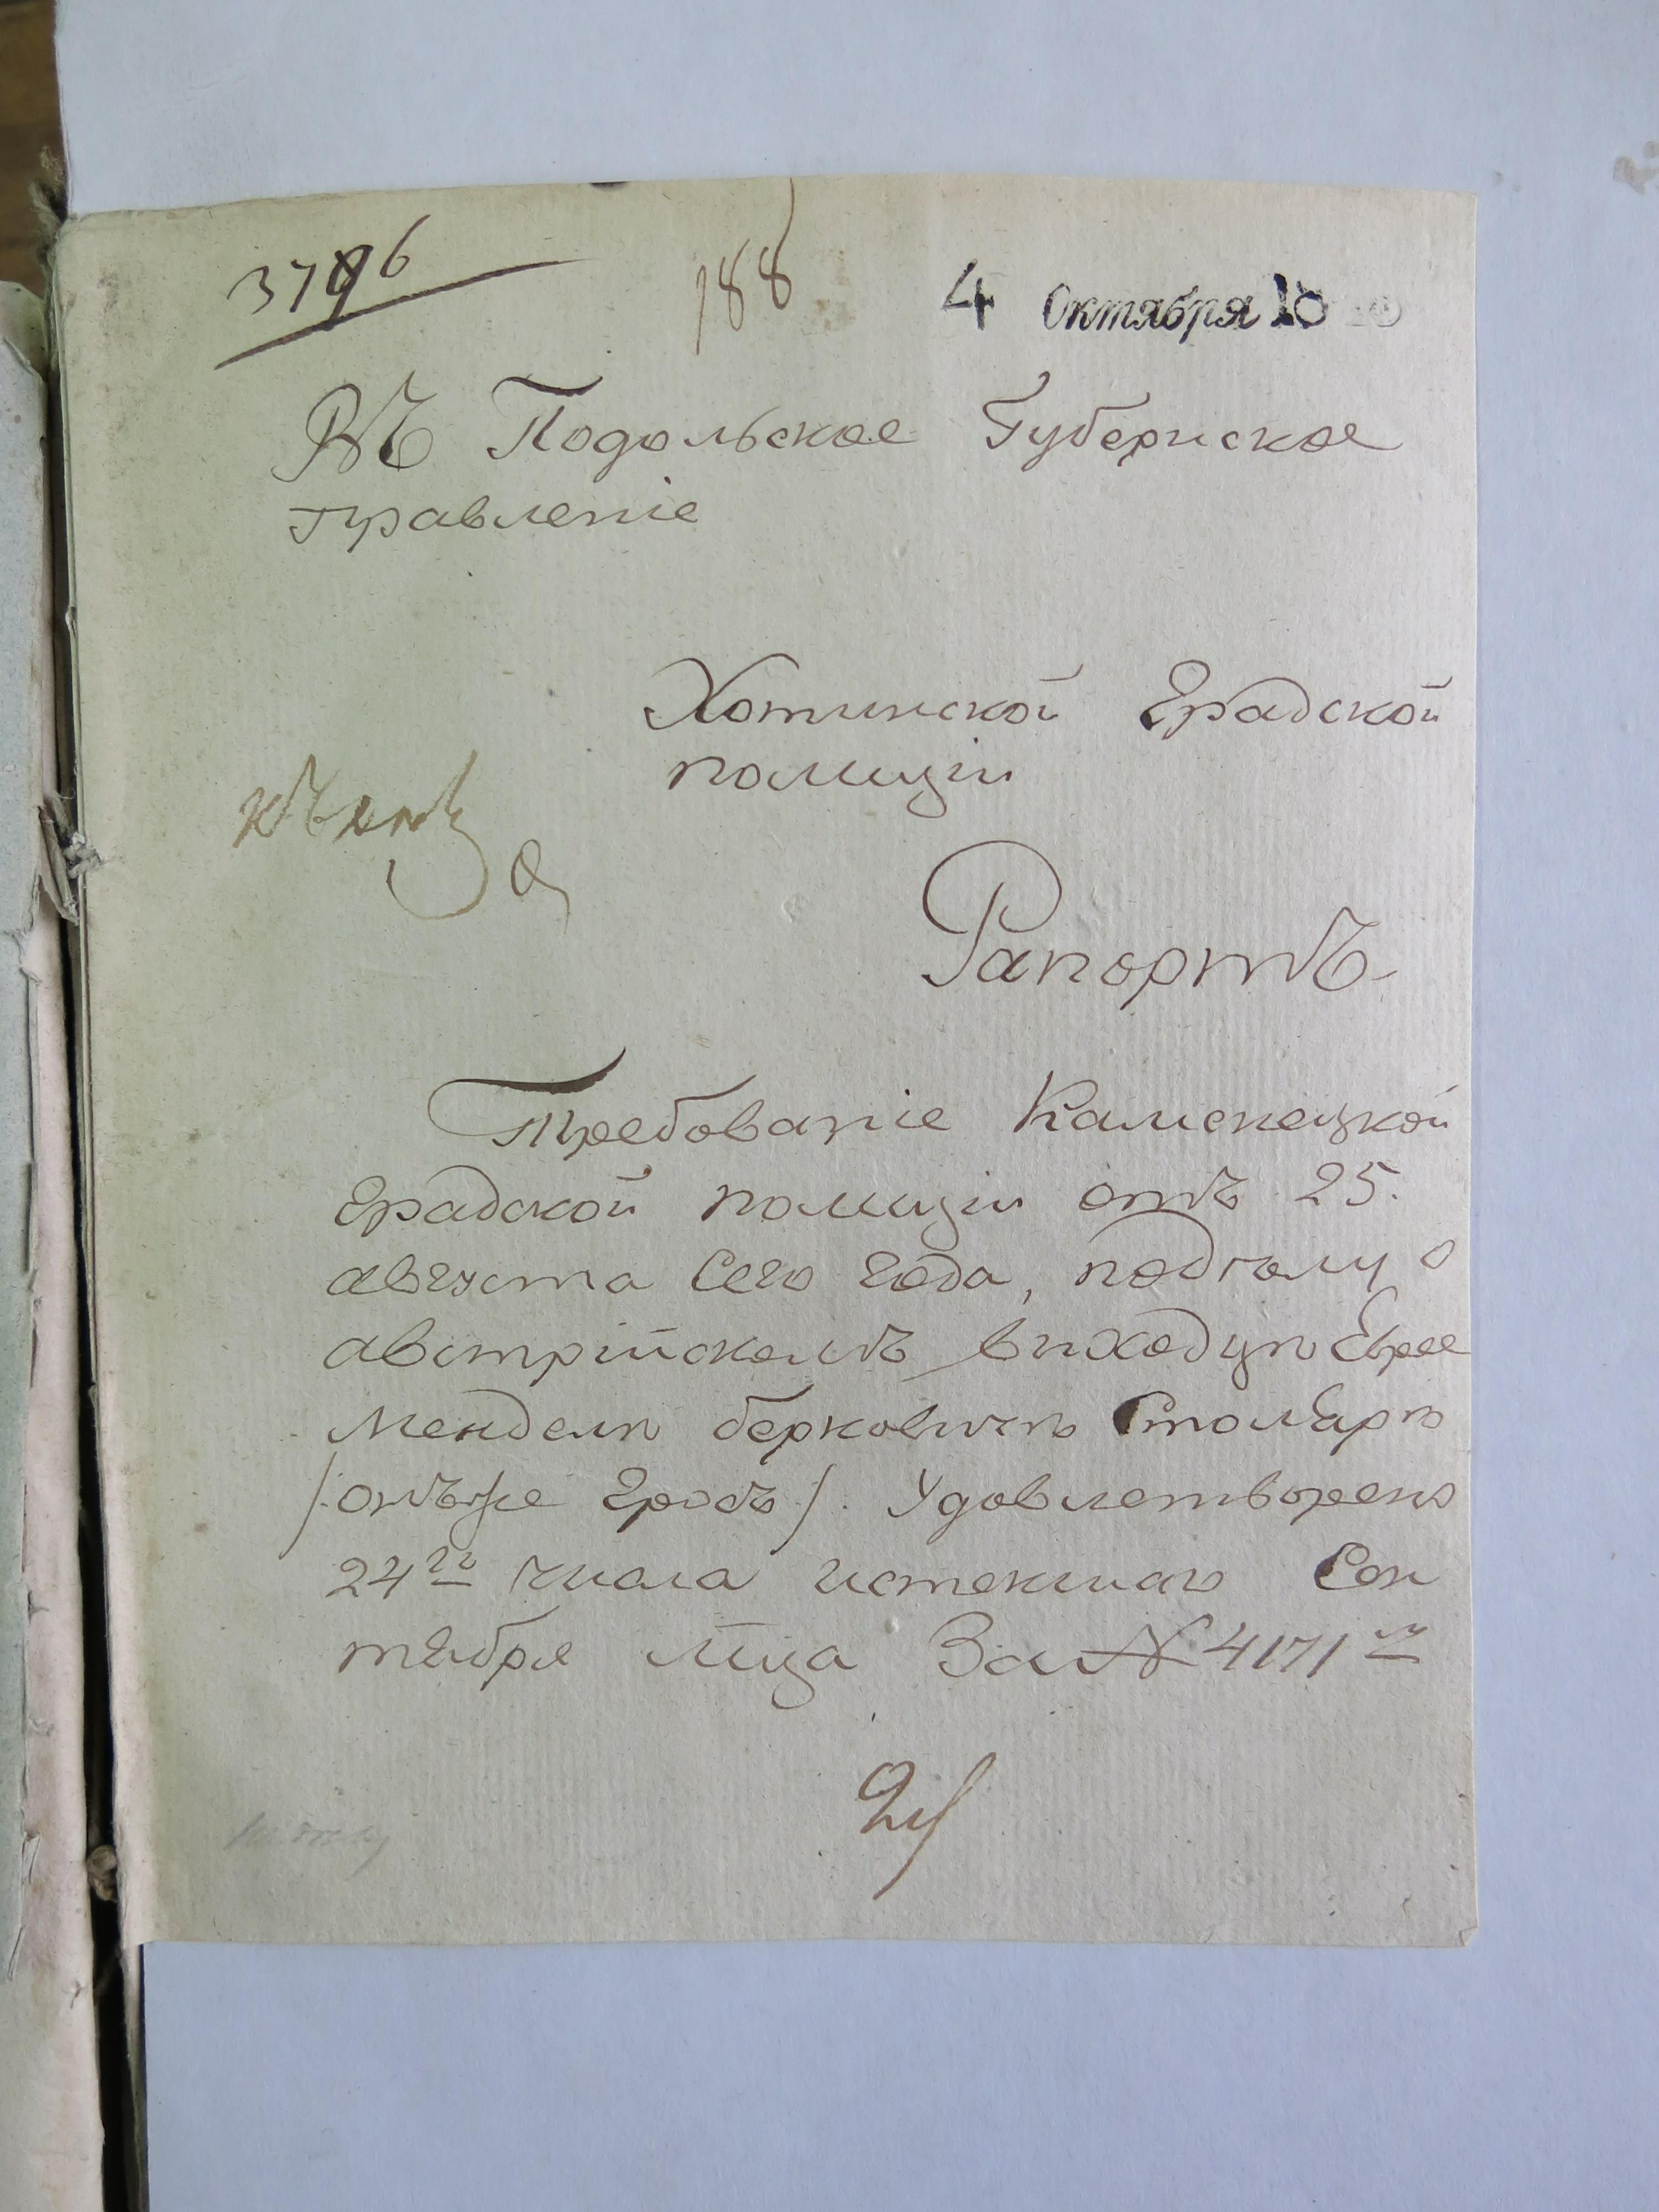 3796
188
4 Октября 18
Въ Подольское Губернское
правленіе
Хотинской Градской
полиціи
къ
Рапортъ
Требованіе Каменецкой
Градской полиціи отъ 25.
августа Сего года, получ о
австрійскомъ выходцѣ Еврее
Менделѣ берковичѣ Столярѣ
/: онъ же Гросъ :/. Удовлетворено
24го числа истекшаго Сен
тября мца За № 4171м